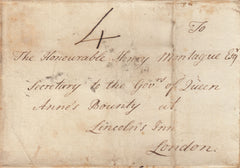 4
To
The Honourable Henry Montague Esqr
Secretary to the Govrs of Queen
Anne's Bounty at
Lincoln's Inn
London.